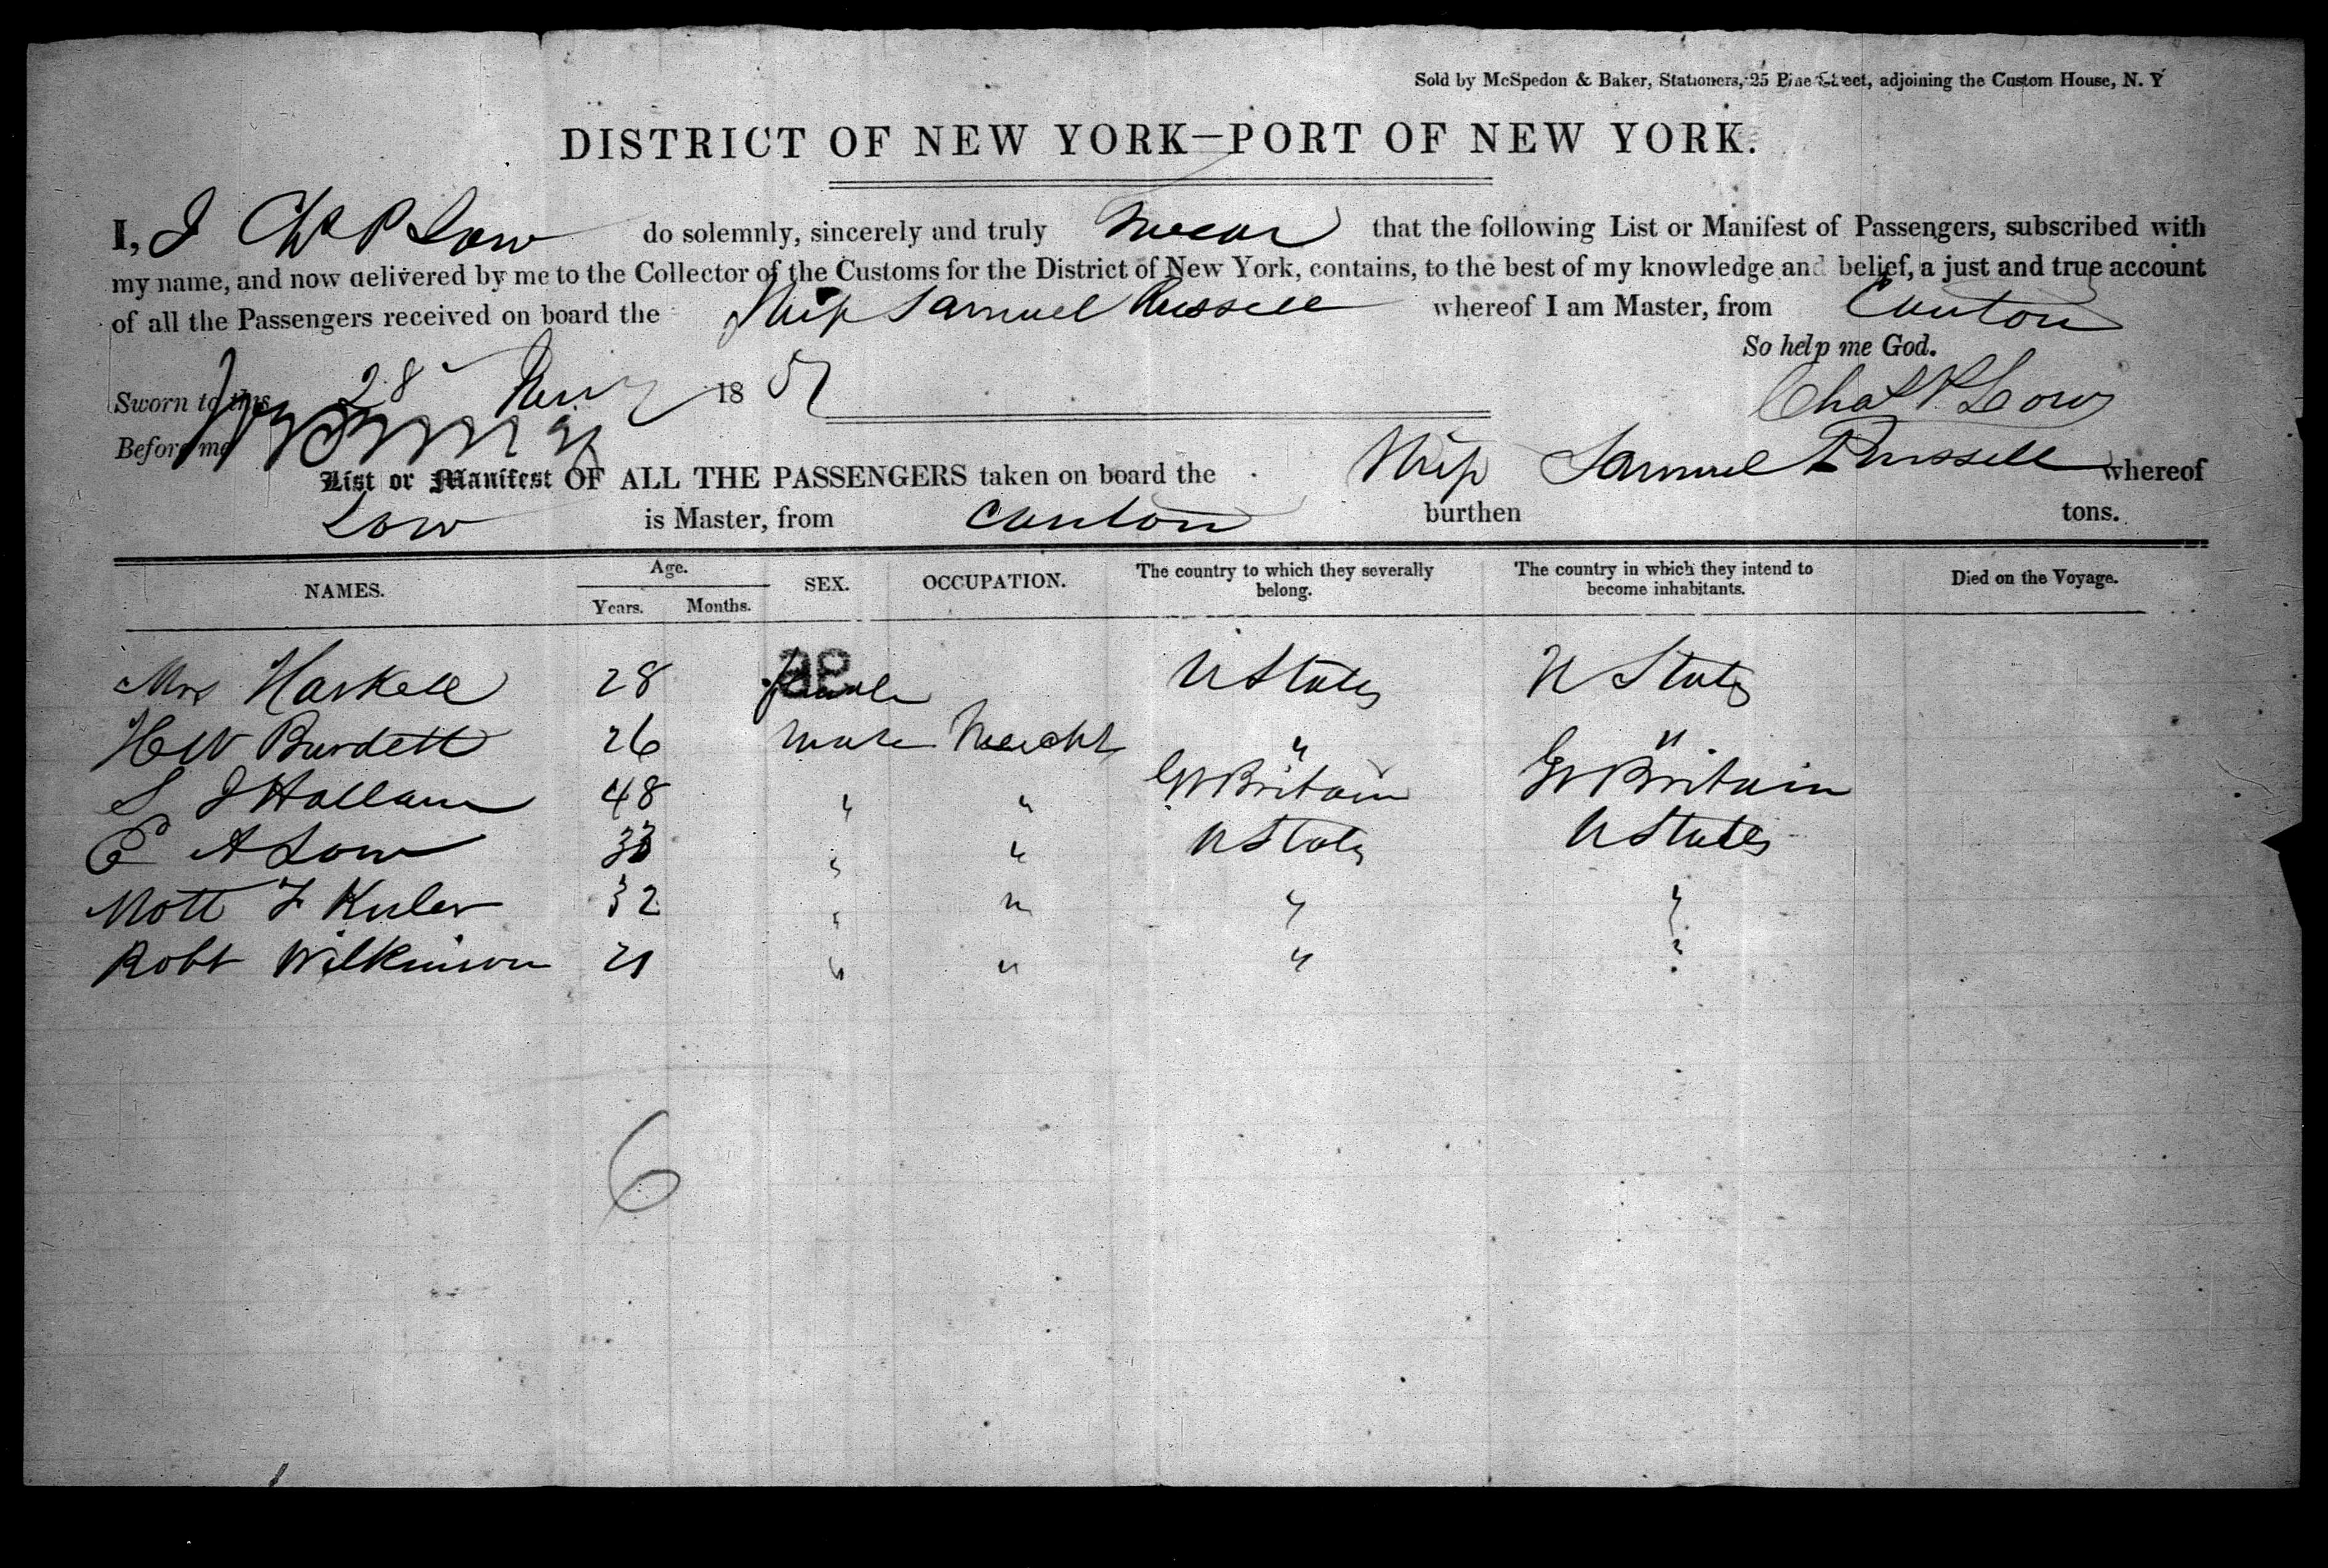 Sold by McSpedon & Baker, Stationers, 25 Pine Street, adjoining the Custom House, N. Y
DISTRICT OF NEW YORK—PORT OF NEW YORK.
I, I Chs P Low do solemnly, sincerely and truly swear that the following List or Manifest of Passengers, subscribed with
my name, and now delivered by me to the Collector of the Customs for the District of New York, contains, to the best of my knowledge and belief, a just and true account
of all the Passengers received on board the Ship Samuel Russell whereof I am Master, from Canton
So help me God.
Sworn to this 28 18 51
Chas P Low
Before me
List or Manifest OF ALL THE PASSENGERS taken on board the Ship Samuel Russell whereof
Low is Master, from Canton burthen tons.
NAMES. Age. Years. Months. SEX. OCCUPATION. The country to which they severally belong. The country in which they intend to become inhabitants. Died on the Voyage.
Mrs Haskell 28 female U States U States
H W Burdett 26 male Mercht " "
S J Hallam 48 " " Gt Britain Gt Britain
E A Low 33 " " U States U States
Mott F 32 " " " "
Robt Wilkinson 21 " " " "
6